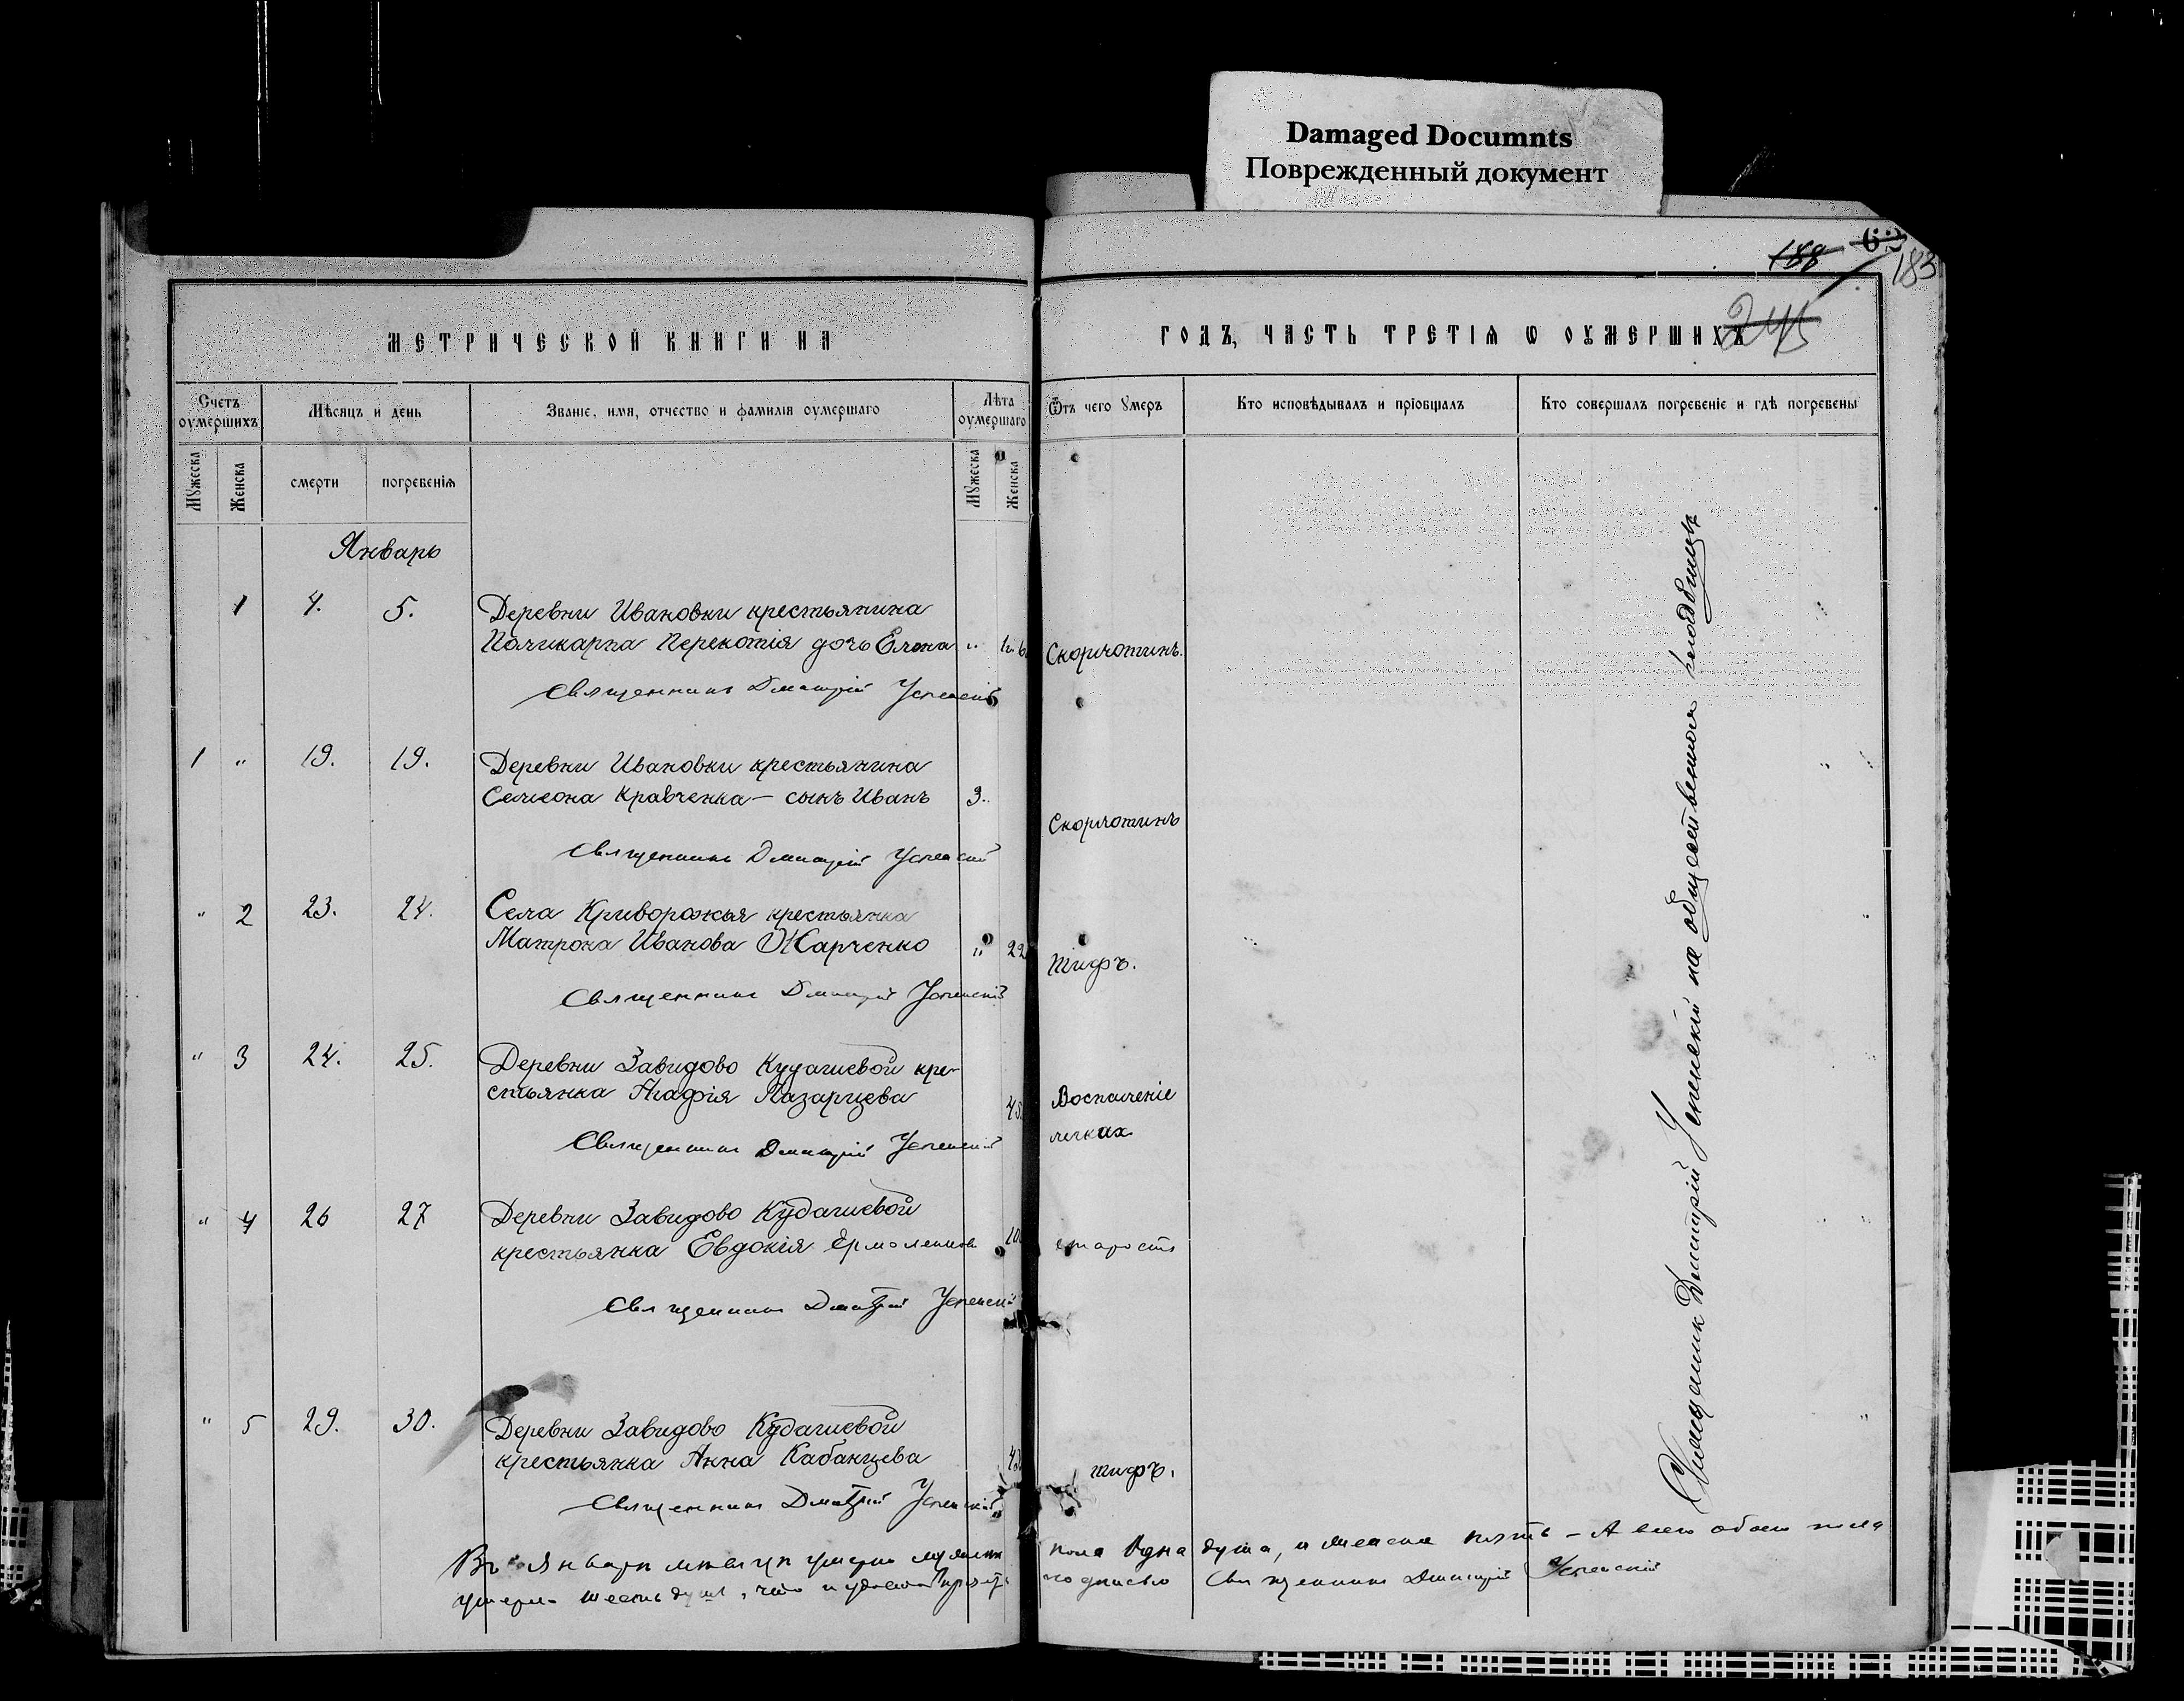 Damaged Documnts
Поврежденный документ
188 62
183
245
МЕТРИЧЕСКОЙ КНИГИ НА
ГОДЪ, ЧАСТЬ ТРЕТІѦ Ѡ ОУМЕРШИХЪ
Счетъ оумершихъ
Мѣсяцъ и день
Званіе, имя, отчество и фамилія оумершаго
Лѣта оумершаго
Ѿтъ чего Умеръ
Кто исповѣдывалъ и пріобщалъ
Кто совершалъ погребеніе и гдѣ погребены
Мужеска
Женска
смерти
погребенія
Мужеска
Женска
Январь
1 4. 5. Деревни Ивановки крестьянина
Поликарпа Перекотія дочь Елена " Скорлотинъ.
Священникъ Дмитрій Успенскій
1 " 19. 19. Деревни Ивановки крестьянина
Симеона Кравченка — сынъ Иванъ 3. Скорлотинъ
Священникъ Дмитрій Успенскій
" 2 23. 24. Села Криворожья крестьянка
Матрона Иванова Харченко " 22 Тифъ.
Священникъ Дмитрій Успенскій
" 3 24. 25. Деревни Завидово Кудашевой кре-
стьянка Агафія Лазарцева 45 Воспаленіе
легких
Священникъ Дмитрій Успенскій
" 4 26 27 Деревни Завидово Кудашевой
крестьянка Евдокія старость
Священникъ Дмитрій Успенскій
" 5 29. 30. Деревни Завидово Кудашевой
крестьянка Анна Кабанцева тифъ.
Священникъ Дмитрій Успенскій
Священник Дмитрій Успенскій на общественном кладбищѣ
Въ Январѣ мѣсяцѣ умерло мужеска пола одна душа, и женска пять — А всего обоего пола
умерло шесть душъ, что и подписью Священникъ Дмитрій Успенскій